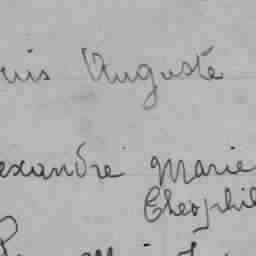 uis Auguste
exandre Marie
Théophil